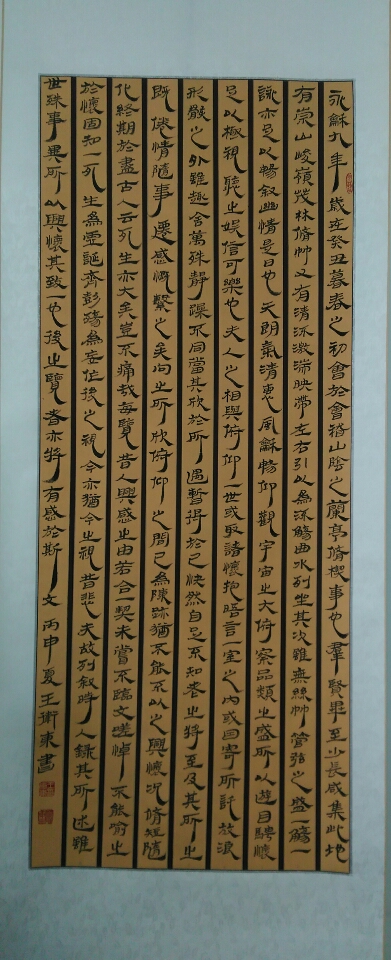 永龢九年歲在癸丑暮春之初會於會稽山陰之蘭亭脩稧事也羣賢畢至少長咸集此地
有崇山峻嶺茂林脩竹又有清流激湍映帶左右引以為流觴曲水列坐其次雖無絲竹管弦之盛一觴一
詠亦足以暢敘幽情是日也天朗氣清惠風龢暢仰觀宇宙之大俯察品類之盛所以遊目騁懷
足以極視聽之娛信可樂也夫人之相與俯仰一世或取諸懷抱晤言一室之内或因寄所託放浪
形骸之外雖趣舍萬殊靜躁不同當其欣於所遇暫得於己快然自足不知老之將至及其所之
既倦情隨事遷感慨繫之矣向之所欣俯仰之間已為陳跡猶不能不以之興懷況脩短隨
化終期於盡古人云死生亦大矣豈不痛哉每覽昔人興感之由若合一契未嘗不臨文嗟悼不能喻之
於懷固知一死生為虛誕齊彭殤為妄作後之視今亦猶今之視昔悲夫故列敘時人錄其所述雖
世殊事異所以興懷其致一也後之覽者亦將有感於斯文丙申夏王衛東書